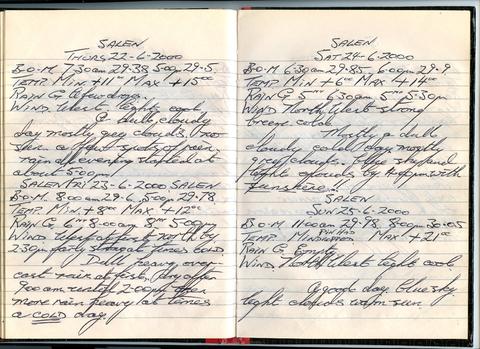 SALEN
THURS 22-6-2000
B·O·M. 7·30am 29·38 5·00pm 29·5.
TEMP. MIN +11°° MAX +15°°
RAIN G. A few drops.
WIND. West light cool
A dull, cloudy
day mostly grey clouds. no
sun. a few spots of rain,
rain all evening started at
about 5·00pm.
SALEN FRI 23-6-2000 SALEN
B·O·M. 8·00am 29·6. 5·00pm 29·78
TEMP. MIN. +8°° MAX +12°°
RAIN G. 6mm 8·00am 8mm 5·00pm
WIND. West
2·30pm fairly strong at times COLD
Dull heavy over
cast rain at first, dry after
9·00am until 2·00pm then
more rain heavy at times
a COLD day.
SALEN
SAT 24-6-2000
B·O·M 6·30am 29·85 6·00pm 29·9.
TEMP. MIN +6°° MAX +14°°
RAIN G 5mm 6·30am 5mm 5·30pm
WIND North West strong
breeze cold.
Mostly a dull
cloudy cold day mostly
grey clouds. Blue sky and
light clouds by 4·00pm with
sunshine!!
SALEN
SUN 25-6-2000
B·O·M 11·00am 29·98, 8·00pm 30·05
TEMP. MIN MAX +21°°
RAIN G Empty
WIND North West light cool
A good day. blue sky
light clouds warm sun.